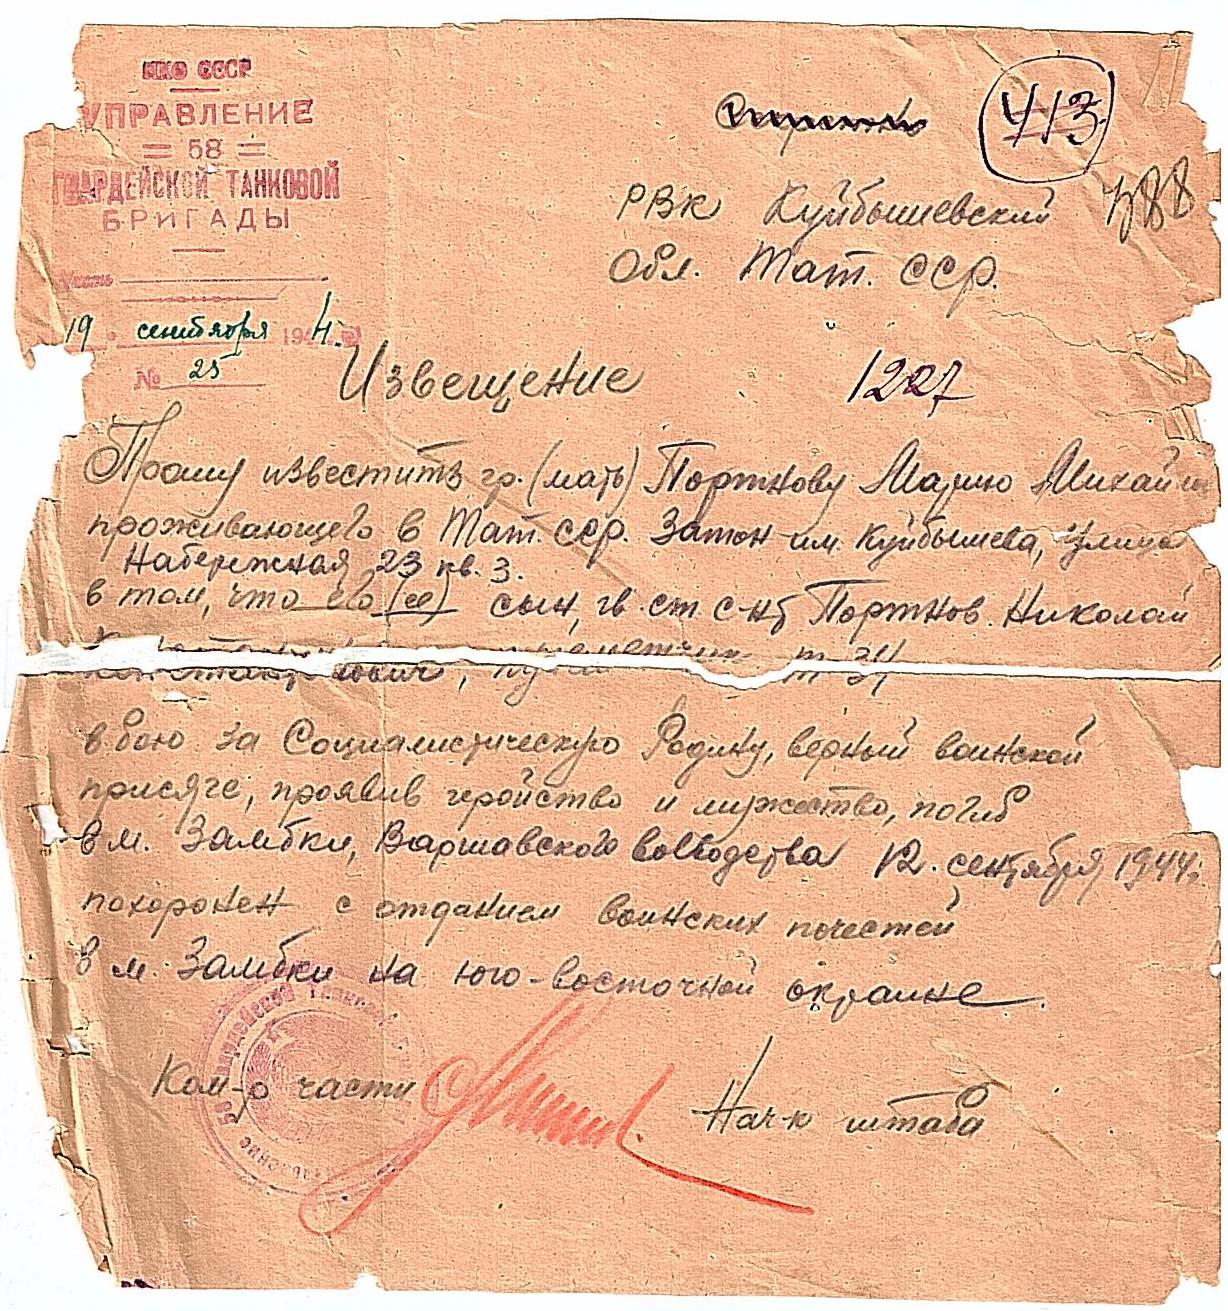 НКО СССР
УПРАВЛЕНИЕ
= 58 =
ГВАРДЕЙСКОЙ ТАНКОВОЙ
БРИГАДЫ
Часть
19 сентября 1944.
№ 25
413
РВК Куйбышевский 788
Обл. Тат. ССР.
Извещение 1227
Прошу известить гр. (мать) Портнову Марию Михайл
проживающего в Тат. ССР. Затон им. Куйбышева, улица
Набережная 23 кв. 3.
в том, что его (ее) сын, гв. ст с-нт Портнов. Николай
Константинович, Т-34
в бою за Социалистическую Родину, верный воинской
присяге, проявив геройство и мужество, погиб
в м. Замбки, Варшавского воеводства 12. сентября 1944г.
похоронен с отданием воинских почестей
в м. Замбки на юго-восточной окраине.
Ком-р части Нач-к штаба